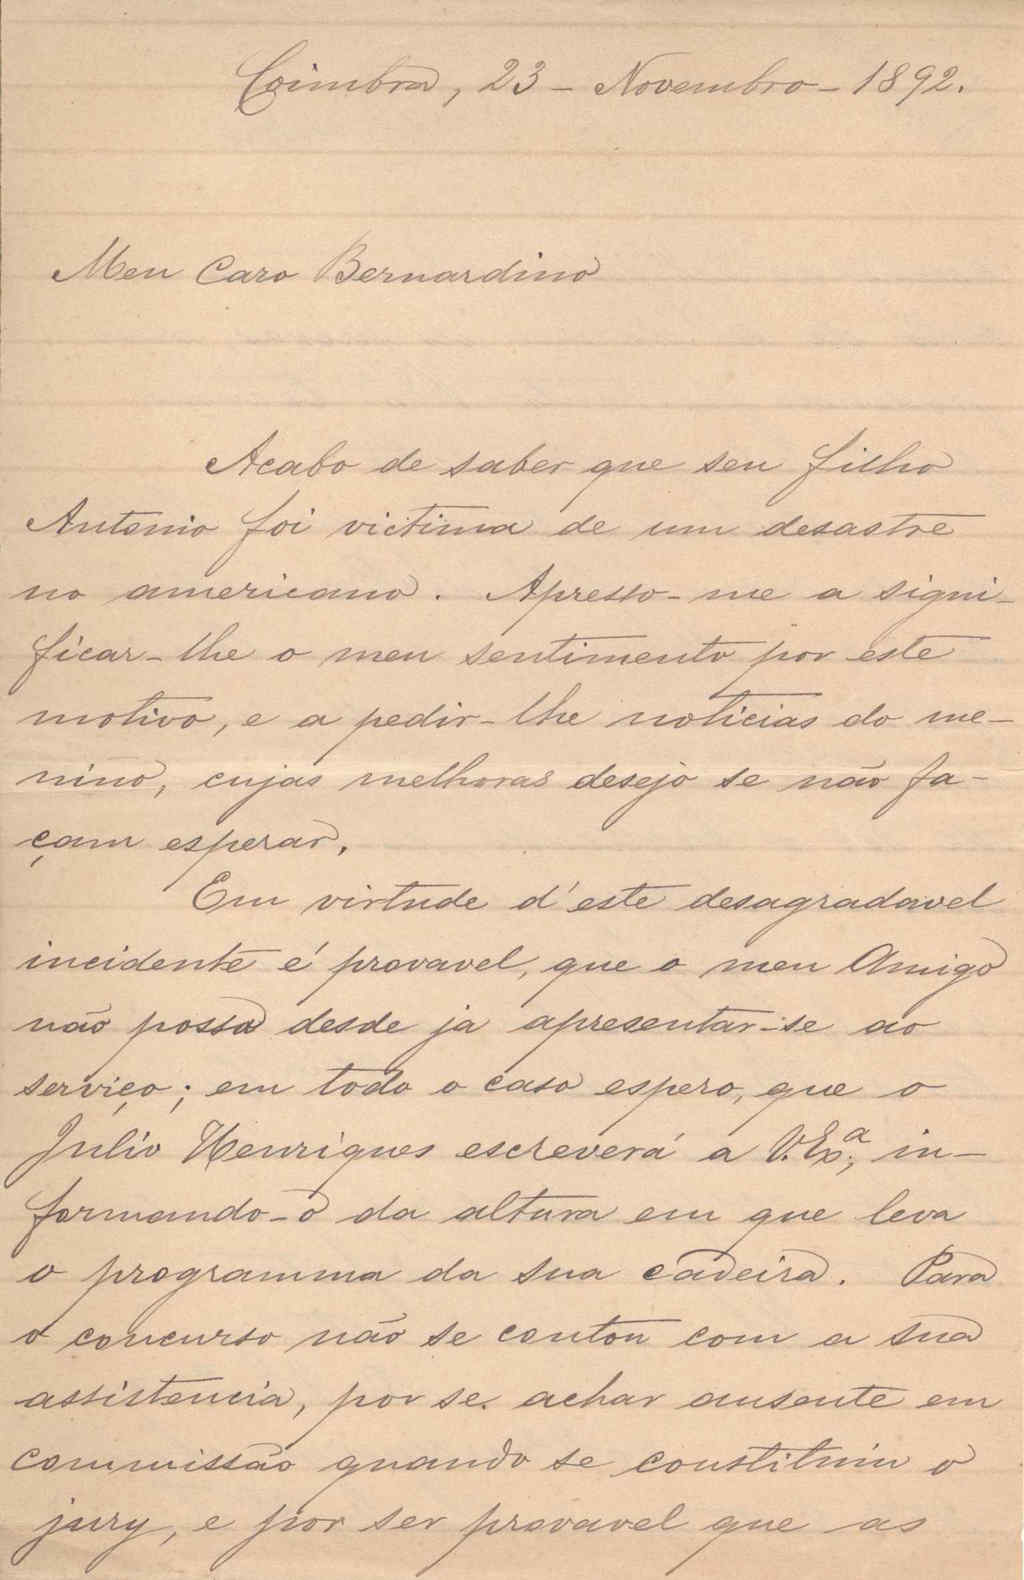 Coimbra, 23 - Novembro - 1892.
Meu Caro Bernardino
Acabo de saber que seu filho
Antonio foi victima de um desastre
no americano. Apresso-me a signi-
ficar-lhe o meu sentimento por este
motivo, e a pedir-lhe noticias do me-
nino, cujas melhoras desejo se não fa-
çam esperar.
Em virtude d'este desagradavel
incidente é provavel, que o meu Amigo
não possa desde ja apresentar-se ao
serviço; em todo o caso espero, que o
Julio Henriques escreverá a V. Ex.ª, in-
formando-o da altura em que leva
o programma da sua cadeira. Para
o concurso não se contou com a sua
assistencia, por se achar ausente em
commissão quando se constituiu o
jury, e por ser provavel que as